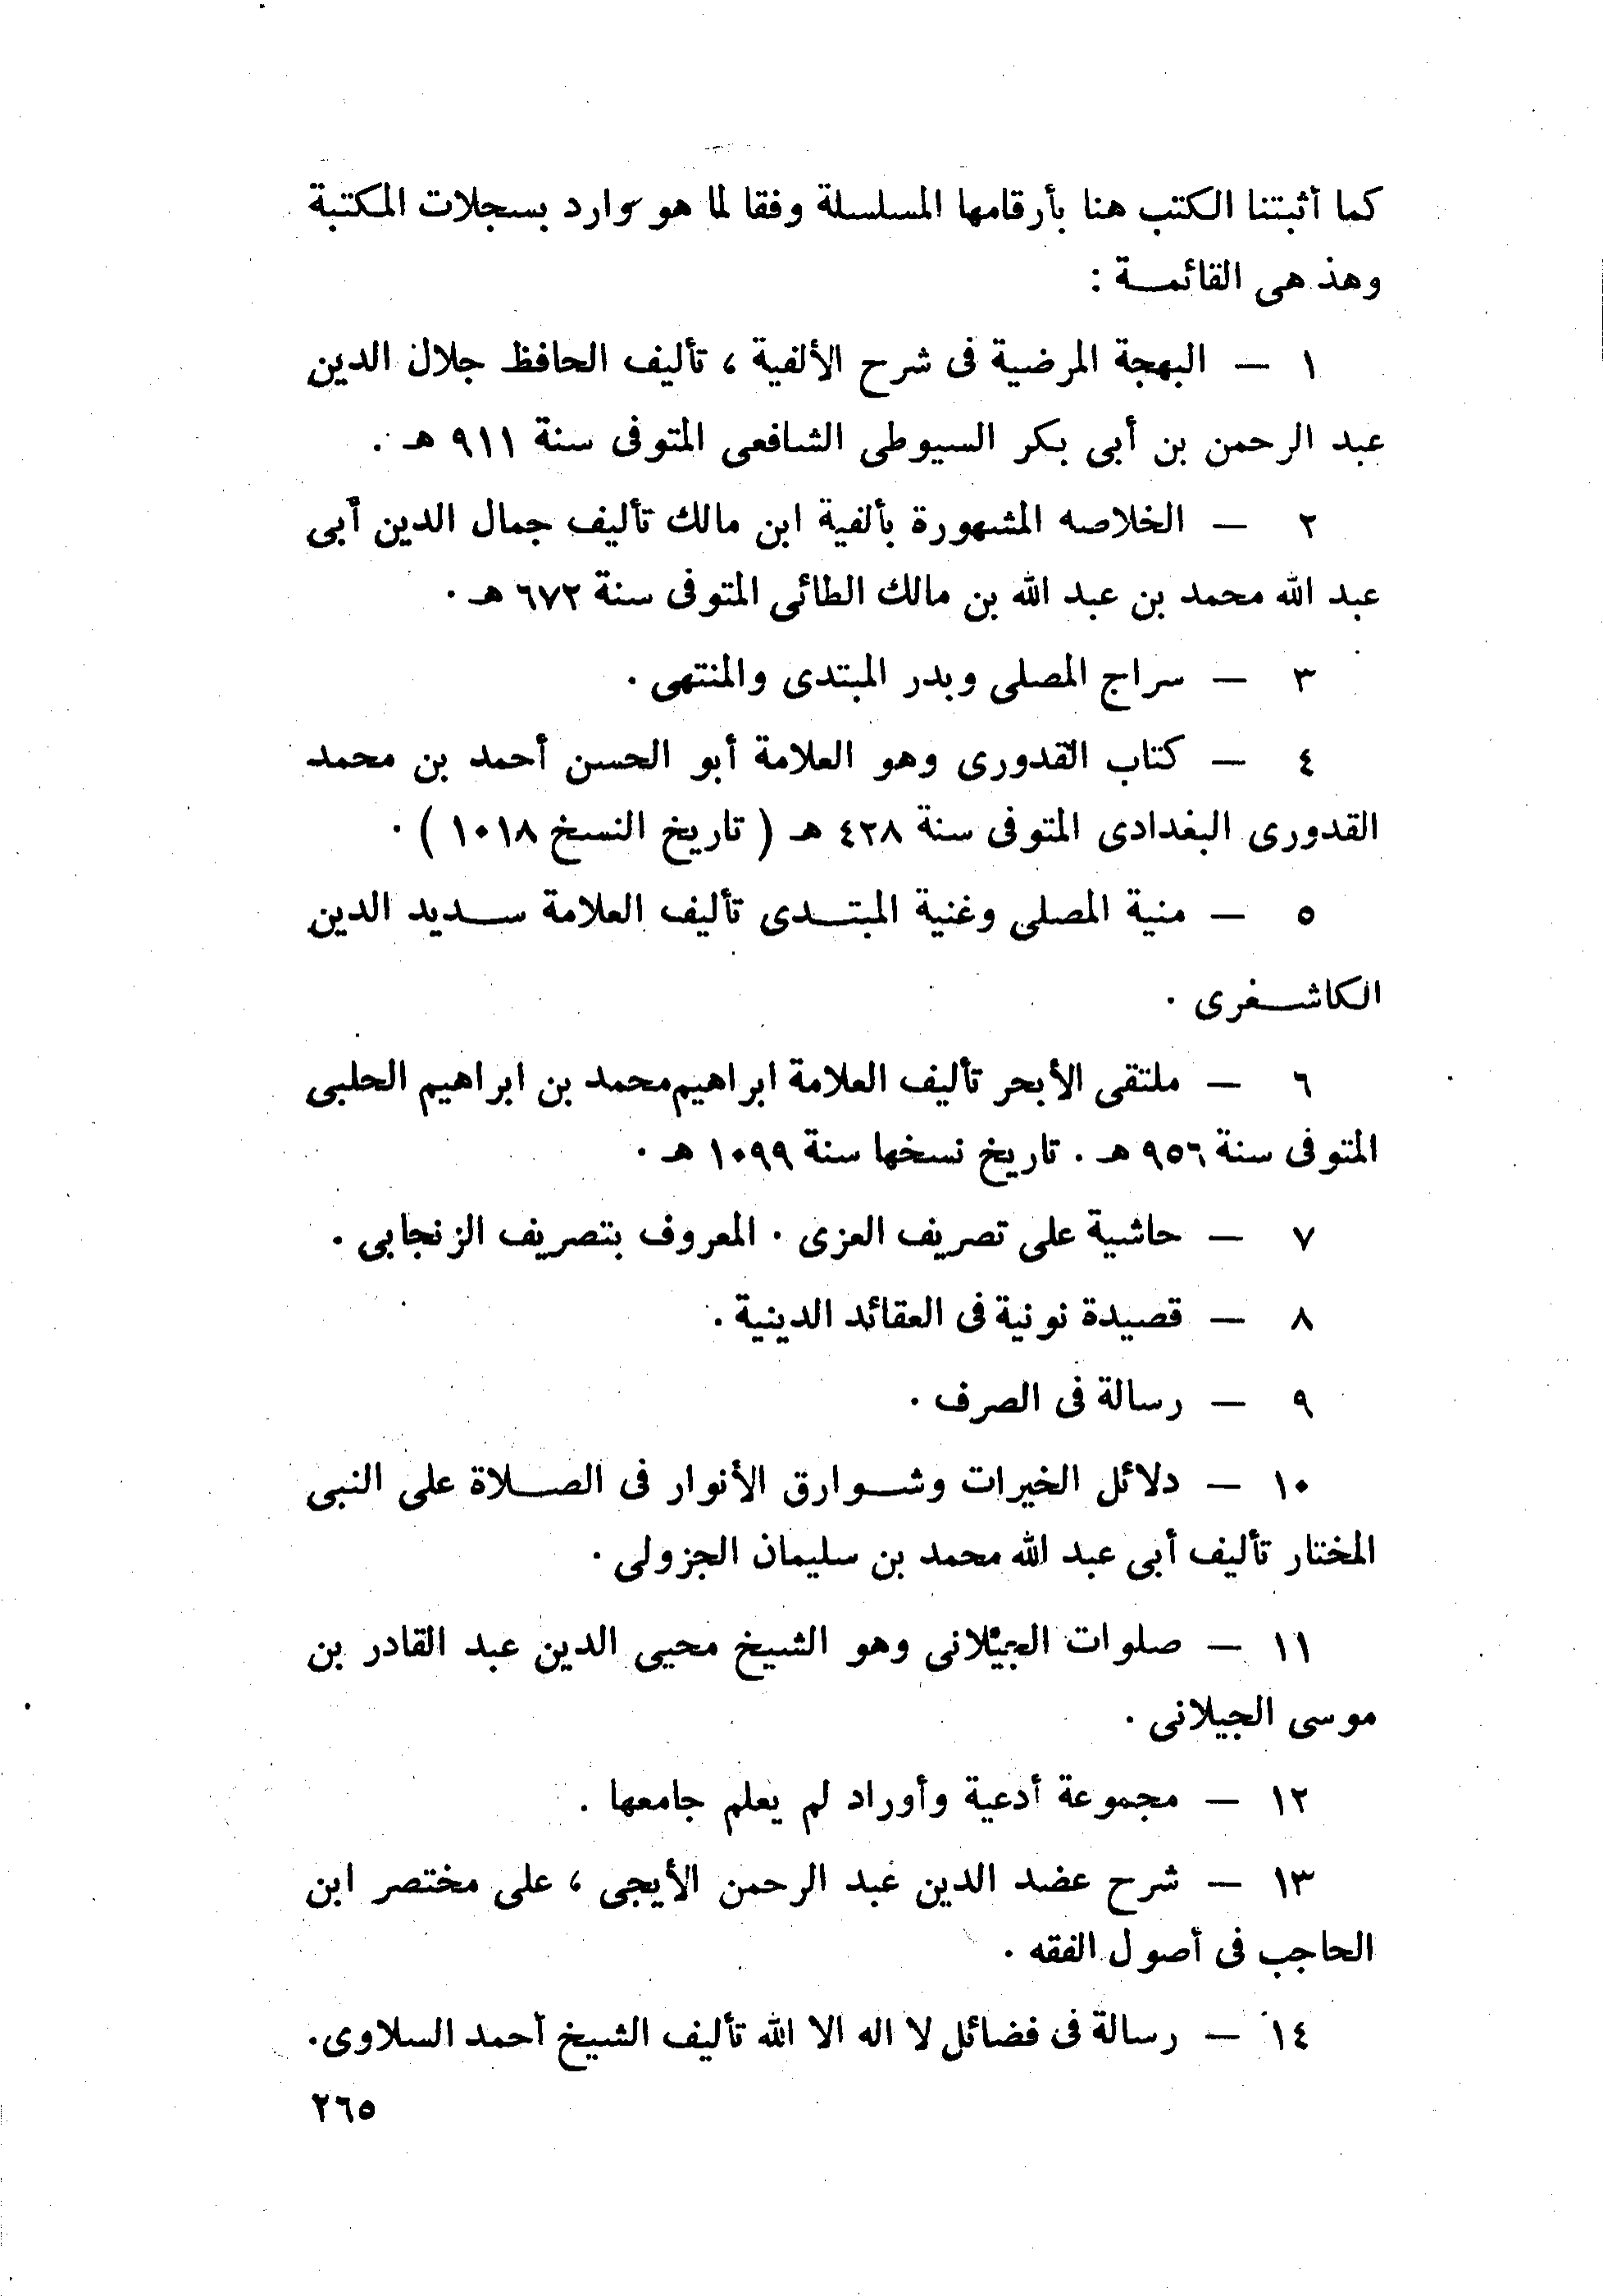 كما أثبتنا الكتب هنا بأرقامها المسلسلة وفقا لما هو وارد بسجلات المكتبة
وهذ هى القائمة :
١ — البهجة المرضية فى شرح الألفية ، تأليف الحافظ جلال الدين
عبد الرحمن بن أبى بكر السيوطى الشافعى المتوفى سنة ٩١١ هـ .
٢ — الخلاصه المشهورة بألفية ابن مالك تأليف جمال الدين أبى
عبد الله محمد بن عبد الله بن مالك الطائى المتوفى سنة ٦٧٢ هـ .
٣ — سراج المصلى وبدر المبتدى والمنتهى .
٤ — كتاب القدورى وهو العلامة أبو الحسن أحمد بن محمد
القدورى البغدادى المتوفى سنة ٤٢٨ هـ ( تاريخ النسخ ١٠١٨ ) .
٥ — منية المصلى وغنية المبتدى تأليف العلامة سديد الدين
الكاشغرى .
٦ — ملتقى الأبحر تأليف العلامة ابراهيم محمد بن ابراهيم الحلبى
المتوفى سنة ٩٥٦ هـ . تاريخ نسخها سنة ١٠٩٩ هـ .
٧ — حاشية على تصريف العزى . المعروف بتصريف الزنجابى .
٨ — قصيدة نونية فى العقائد الدينية .
٩ — رسالة فى الصرف .
١٠ — دلائل الخيرات وشوارق الأنوار فى الصلاة على النبى
المختار تأليف أبى عبد الله محمد بن سليمان الجزولى .
١١ — صلوات الجيلانى وهو الشيخ محيى الدين عبد القادر بن
موسى الجيلانى .
١٢ — مجموعة أدعية وأوراد لم يعلم جامعها .
١٣ — شرح عضد الدين عبد الرحمن الأيجى ، على مختصر ابن
الحاجب فى أصول الفقه .
١٤ — رسالة فى فضائل لا اله الا الله تأليف الشيخ أحمد السلاوى.
٢٦٥